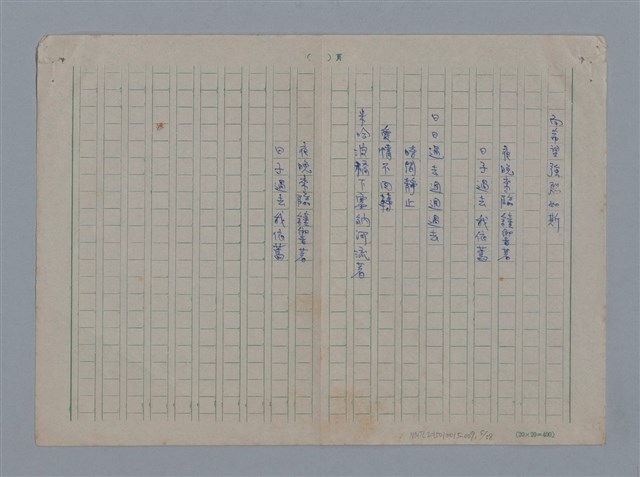 ( )頁
而希望強烈如斯
夜晚來臨鐘響著
日子過去我依舊
日日過去週週過去
時間靜止
愛情不回轉
米哈波橋下塞納河流著
夜晚來臨鐘響著
日子過去我依舊
(20×20=400)